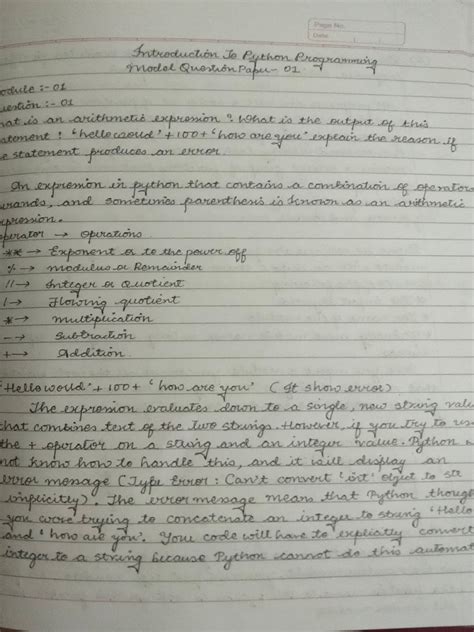 Page No.
Date
Introduction To Python Programming
Model Question Paper - 01
odule :- 01
uestion :- 01
hat is an arithmetic expression? What is the output of this
atement : 'helloworld' + 100 + 'how are you' explain the reason if
e statement produces an error.
An expression in python that contains a combination of operators
erands, and sometimes parenthesis is known as an arithmetic
xpression.
perator → Operations
** → Exponent or to the power off
% → modulus or Remainder
// → Integer or Quotient
/ → Flowing quotient
* → multiplication
- → Subtraction
+ → Addition.
'Helloworld' + 100 + 'how are you' ( It show error)
The expression evaluates down to a single, new string valu
that combines text of the two strings. However, if you try to use
the + operator on a string and an integer value. Python w
not know how to handle this, and it will display an
error message (Type Error : Can't convert 'int' object to str
implicitly). The error message means that Python though
you were trying to concatenate an integer to string 'Hello
and 'how are you'. Your code will have to explicitly convert
integer to a string because Python cannot do this automat